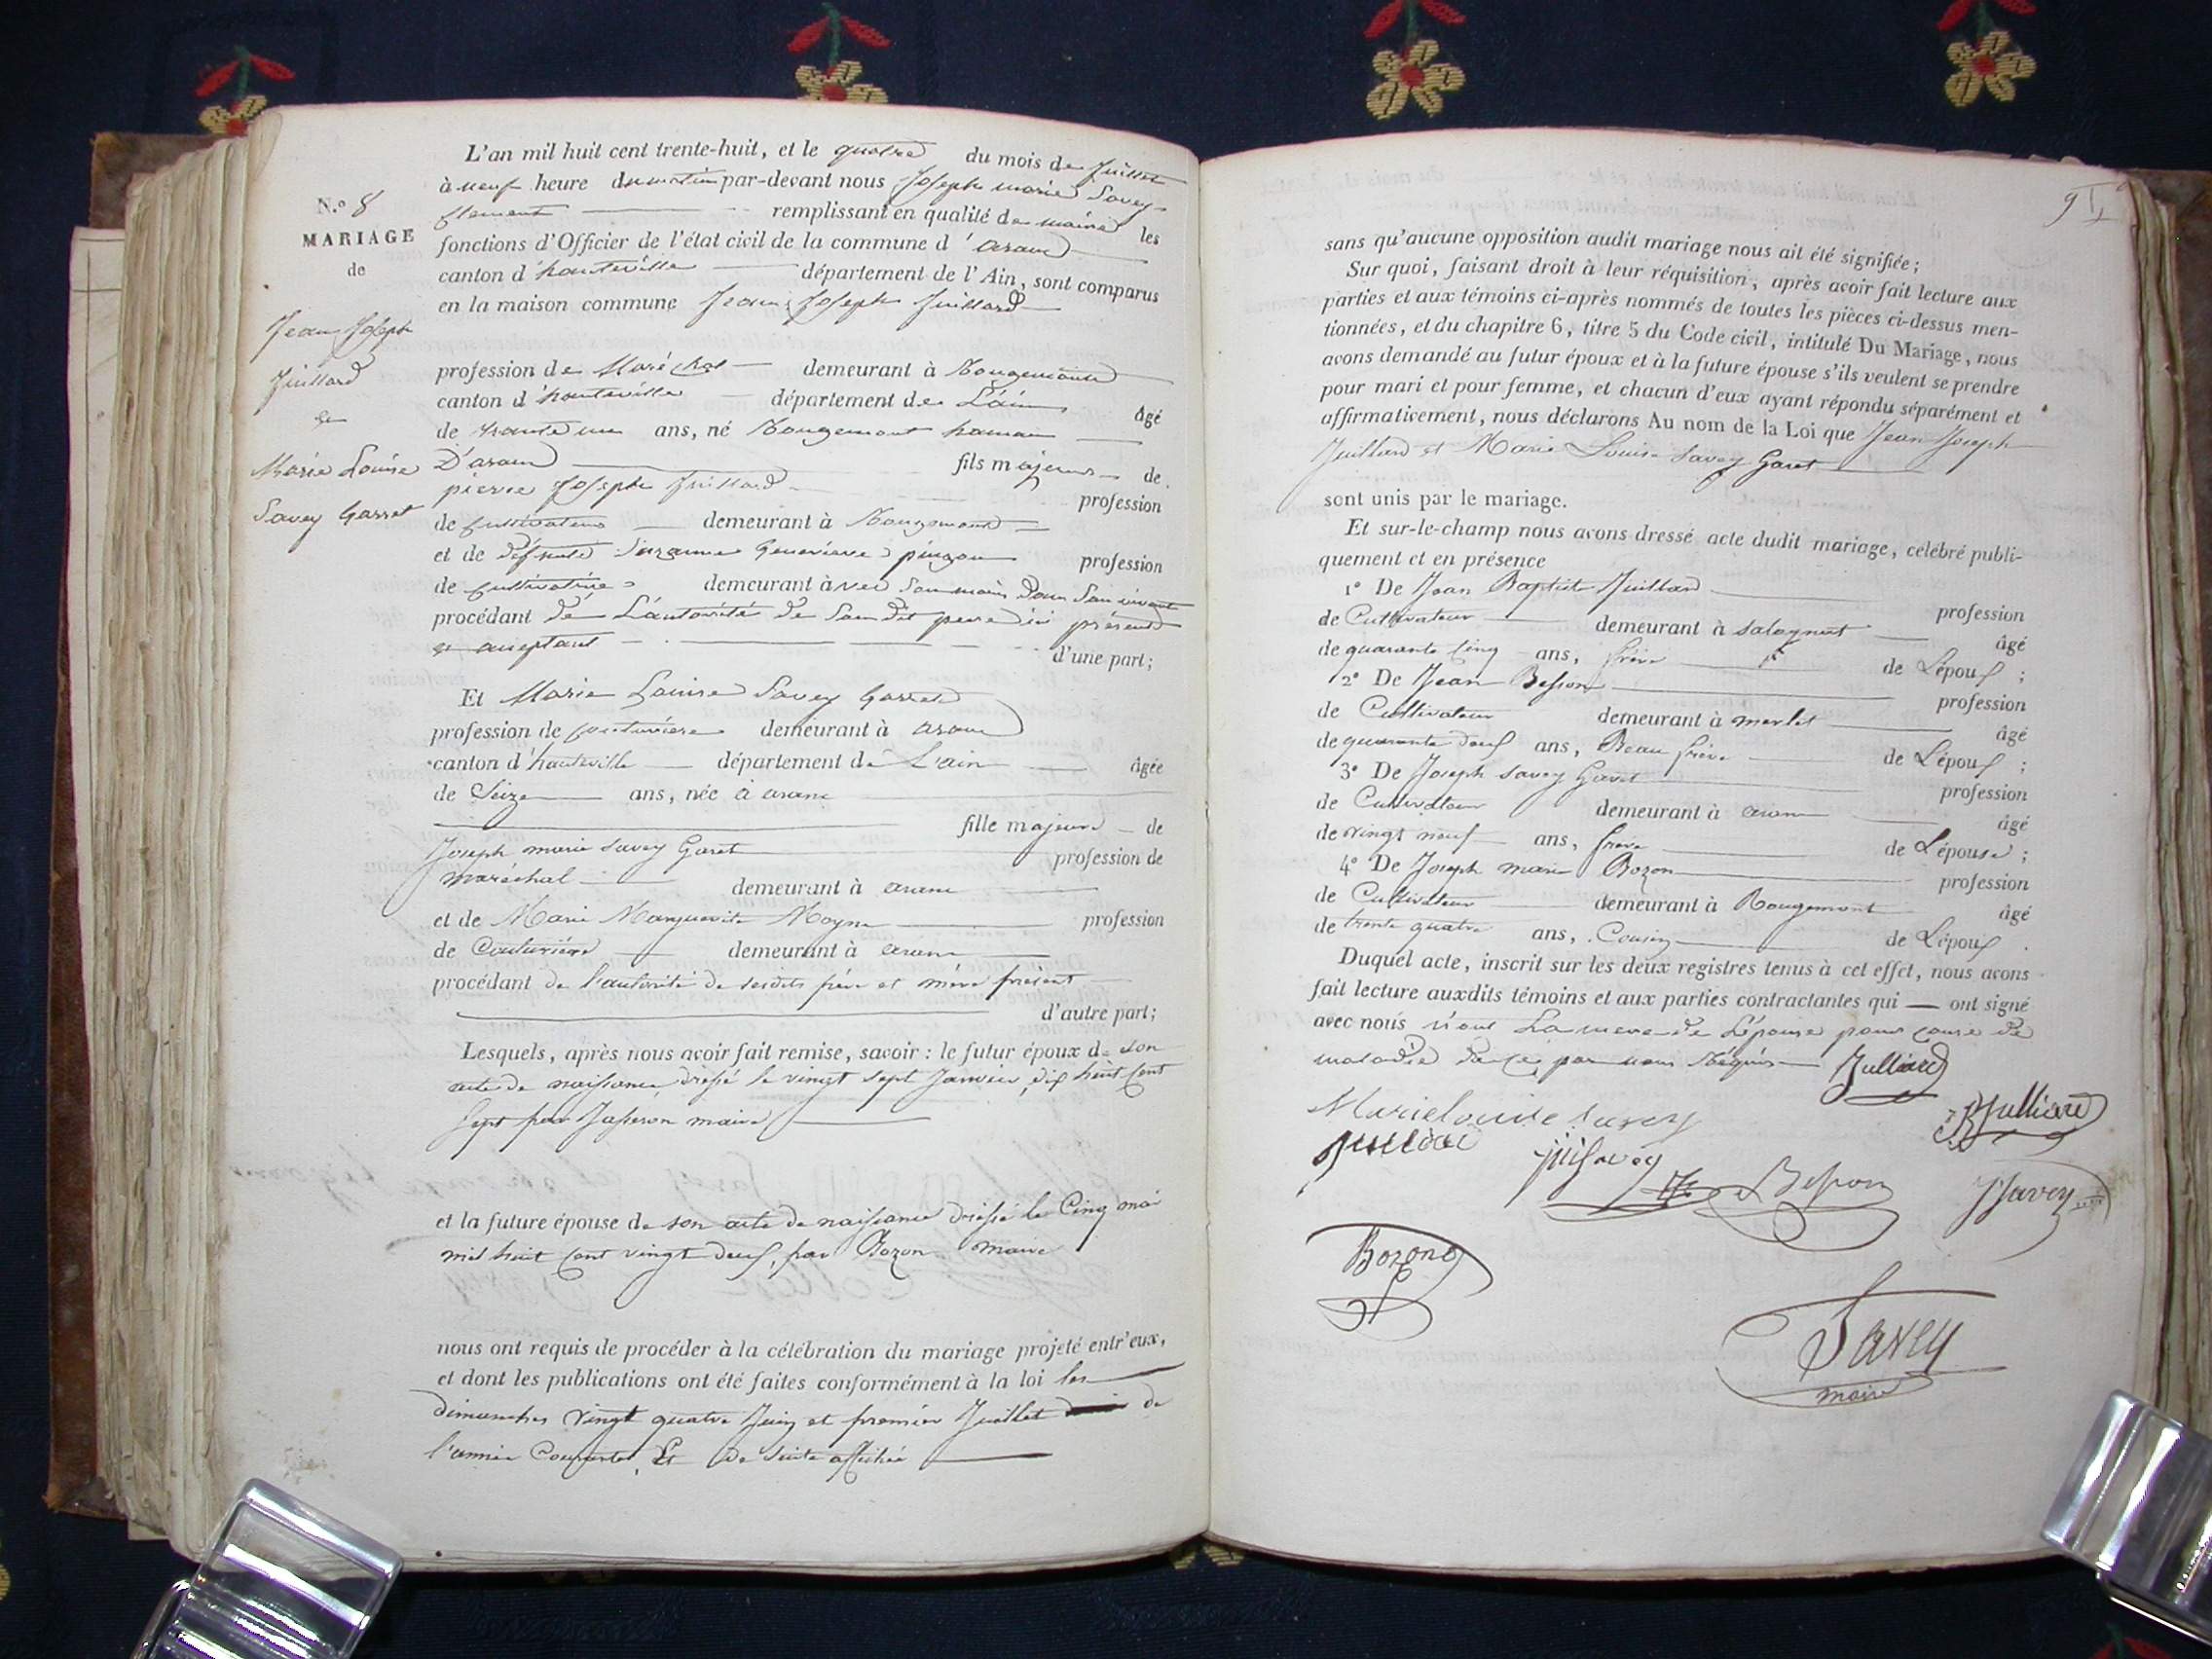 L'an mil huit cent trente-huit, et le quatre du mois de Juillet
à neuf heure du matin par-devant nous Joseph marie Savey
flement remplissant en qualité de maire les
N.º 8
MARIAGE
de
Jean Joseph
Juillard
et
Marie Louise
Savey Garret
fonctions d'Officier de l'état civil de la commune d'aranc
canton d'hauteville département de l'Ain, sont comparus
en la maison commune Jean Joseph Juillard
profession de Maréchal demeurant à Rougemont
canton d'hauteville département de L'ain âgé
de trante un ans, né Rougemont hamau
D'aranc fils majeur de
pierre Joseph Juillard profession
de cultivateur demeurant à Rougemont
et de défunte Suzanne Geneviève pingon profession
de cultivatrice demeurant avec son maris dans son vivant
procédant de L'autorité de son dit pere ici présent
et aceptant d'une part;
Et Marie Louise Savey Garret
profession de couturière demeurant à aranc
canton d'hauteville département de L'ain âgée
de Seize ans, née à aranc
fille majeure de
Joseph marie Savey Garet profession de
maréchal demeurant à aranc
et de Marie Marguerite Moyne profession
de Couturière demeurant à aranc
procédant de l'autorité de sesdits père et mère présent
d'autre part;
Lesquels, après nous avoir fait remise, savoir : le futur époux de son
acte de naissance dressé le vingt sept Janvier, dix huit cent
sept par maire
et la future épouse de son acte de naissance dressé le Cinq mai
mil huit cent vingt deux, par Bozon maire
nous ont requis de procéder à la célébration du mariage projeté entr'eux,
et dont les publications ont été faites conformément à la loi les
dimanches vingt quatre Juin et premier Juillet de
l'année Courante, Et de suite affichée
91
sans qu'aucune opposition audit mariage nous ait été signifiée;
Sur quoi, faisant droit à leur réquisition, après avoir fait lecture aux
parties et aux témoins ci-après nommés de toutes les pièces ci-dessus men-
tionnées, et du chapitre 6, titre 5 du Code civil, intitulé Du Mariage, nous
avons demandé au futur époux et à la future épouse s'ils veulent se prendre
pour mari et pour femme, et chacun d'eux ayant répondu séparément et
affirmativement, nous déclarons Au nom de la Loi que Jean Joseph
Juillard et Marie Louise Savey Garet
sont unis par le mariage.
Et sur-le-champ nous avons dressé acte dudit mariage, célébré publi-
quement et en présence
1º De Jean Baptiste Juillard profession
de Cultivateur demeurant à Salagnat âgé
de quarante cinq ans, frère de L'époux ;
2º De Jean Besson profession
de Cultivateur demeurant à merlet âgé
de quarante deux ans, Beau frère de L'époux ;
3º De Joseph Savey Garet profession
de Cultivateur demeurant à aranc âgé
de vingt neuf ans, frère de L'épouse ;
4º De Joseph marie Bozon profession
de Cultivateur demeurant à Rougemont âgé
de trente quatre ans, Cousin de L'époux .
Duquel acte, inscrit sur les deux registres tenus à cet effet, nous avons
fait lecture auxdits témoins et aux parties contractantes qui ont signé
avec nous non La mere de L'épouse pour cause de
maladie de ce par nous Réquis Julliard
Marielouise Savey
JBJulliard
juillard
jmsavey
Besson
JSavey
Bozon
Savey
maire